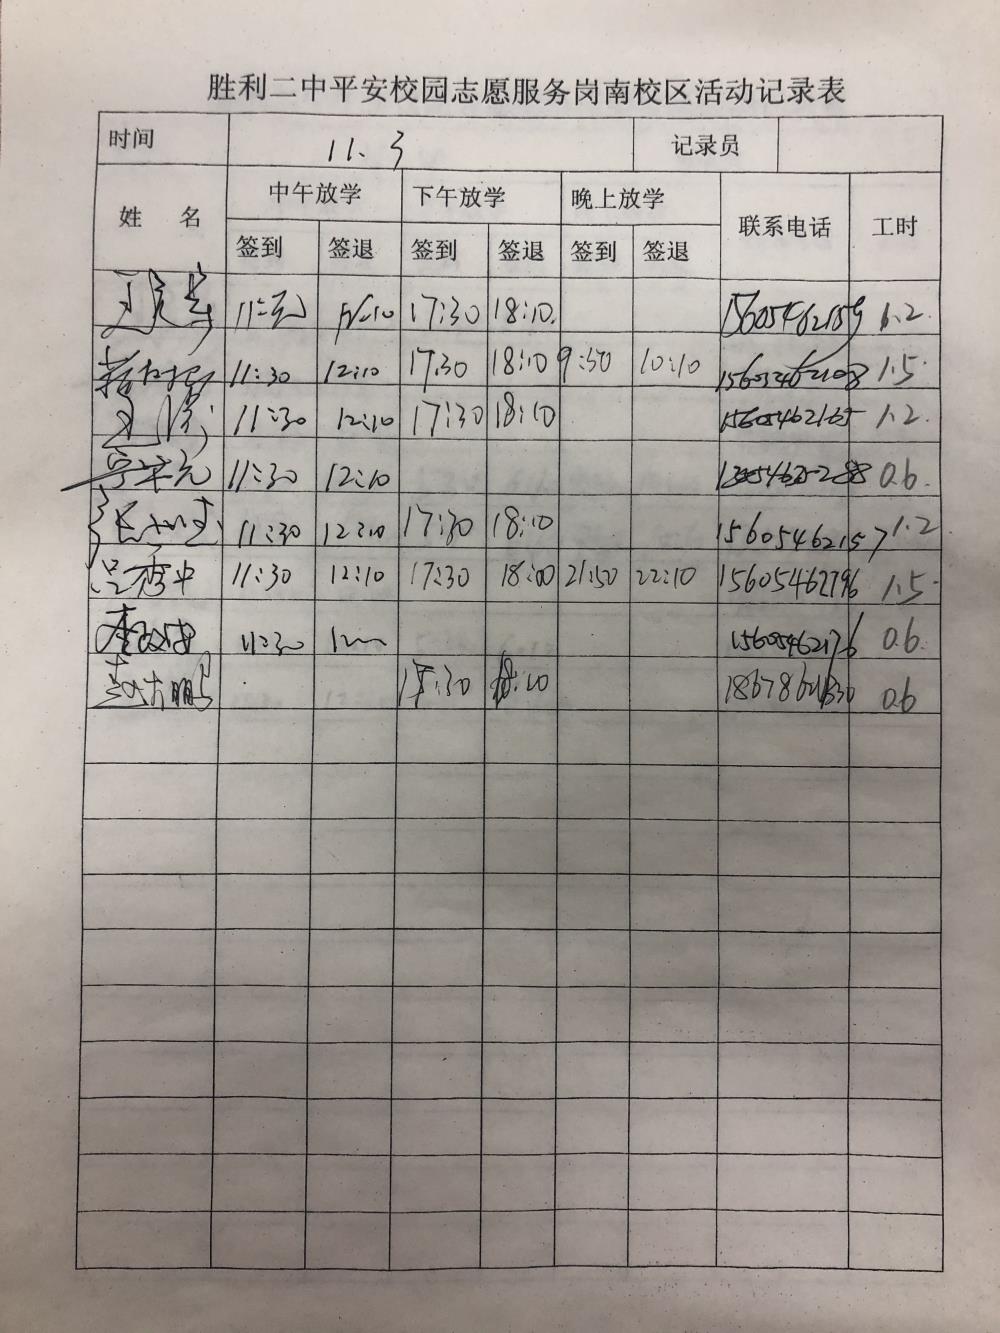 胜利二中平安校园志愿服务岗南校区活动记录表
时间 11.3 记录员
姓 名 中午放学 下午放学 晚上放学 联系电话 工时
签到 签退 签到 签退 签到 签退
17:30 18:10. 15605462159 1.2
11:30 12:10 17:30 18:10 9:50 10:10 1.5
11:30 12:10 17:30 18:10 15605462165 1.2
11:30 12:10 0.6
11:30 12:10 17:30 18:10 15605462157 1.2
吕秀中 11:30 12:10 17:30 18:00 21:50 22:10 15605462796 1.5
11:30 15605462176 0.6
17:30 18:10 0.6